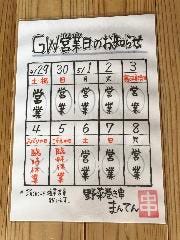 GW営業日のお知らせ
4/29 30 5/1 2 3
土・祝 日 月 火
営業 営業 営業 営業 営業
4 5 6 7 8
みどりの日 こどもの日 土 日 月
臨時休業 臨時休業 営業 営業 営業
野菜巻き串
まんてん
串